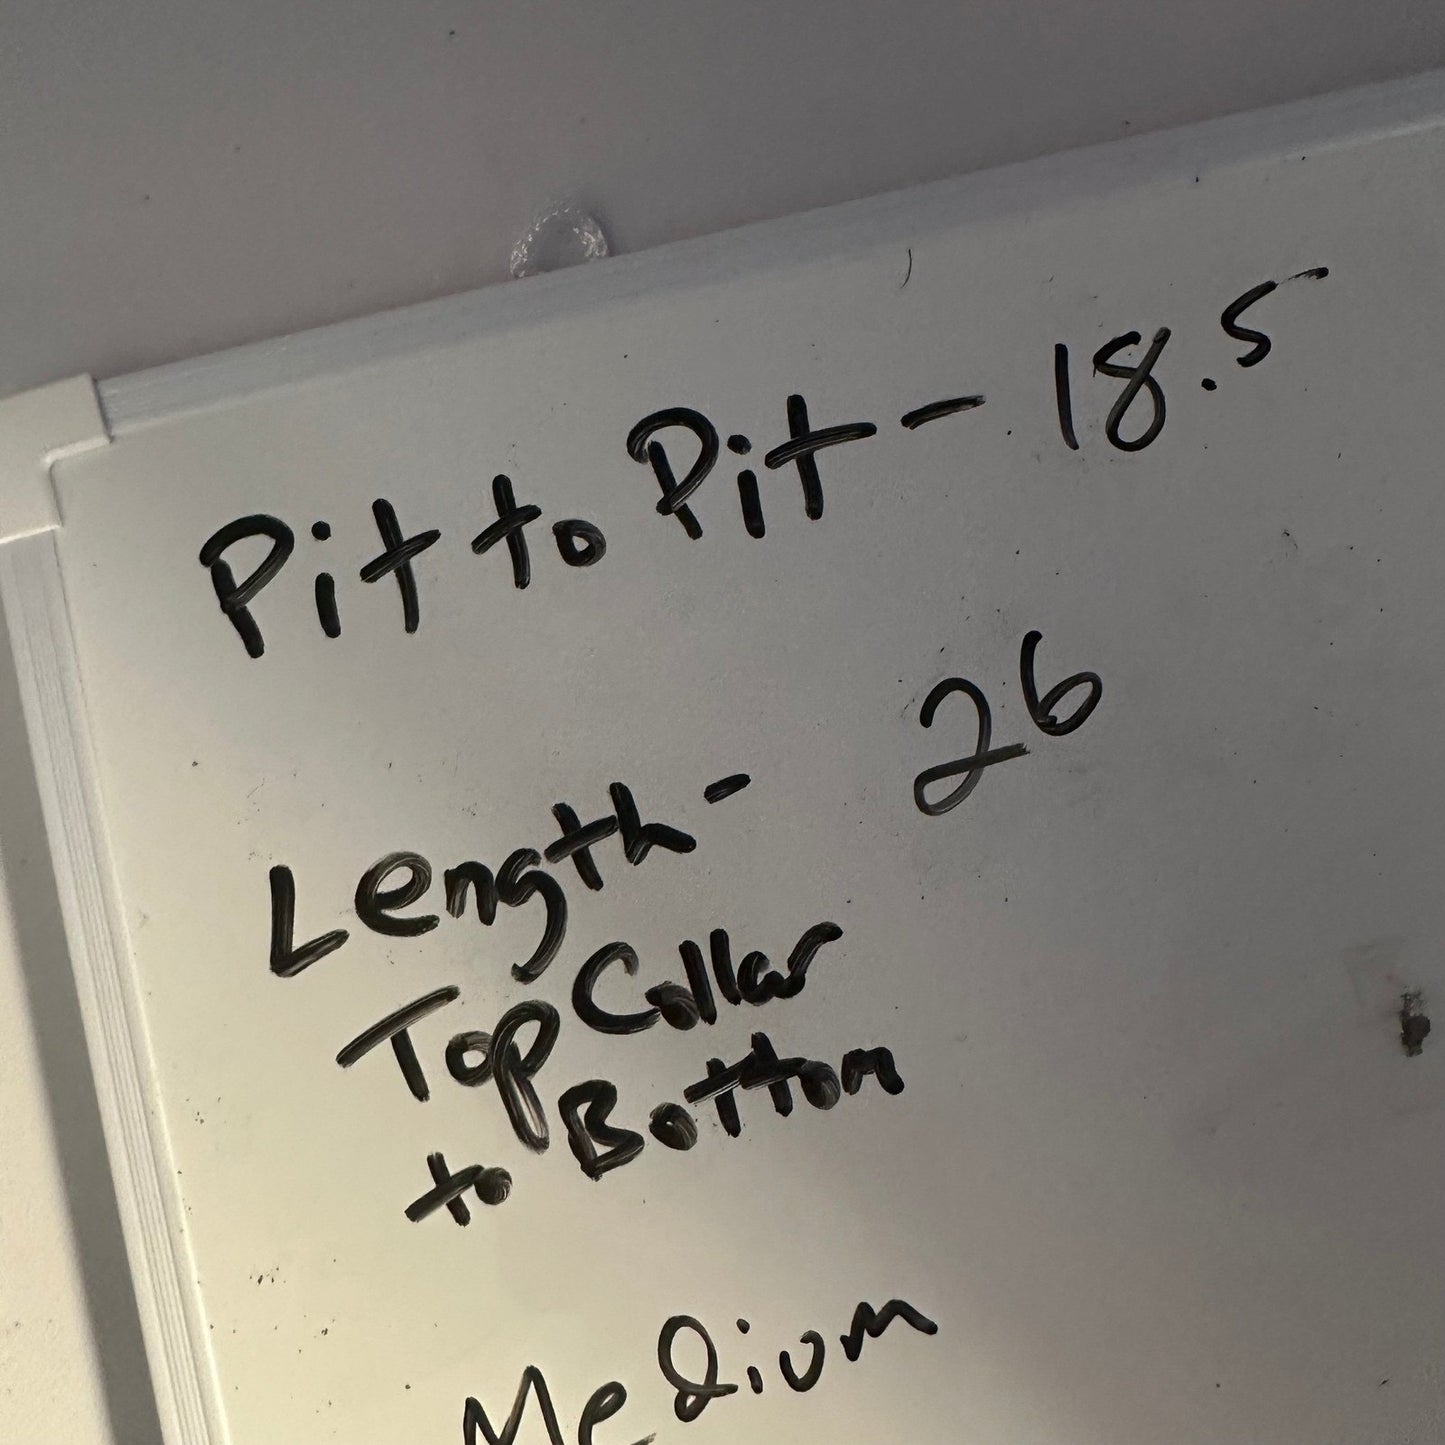 Pit to Pit - 18.5
Length - 26
Top Collar
to Bottom
Medium